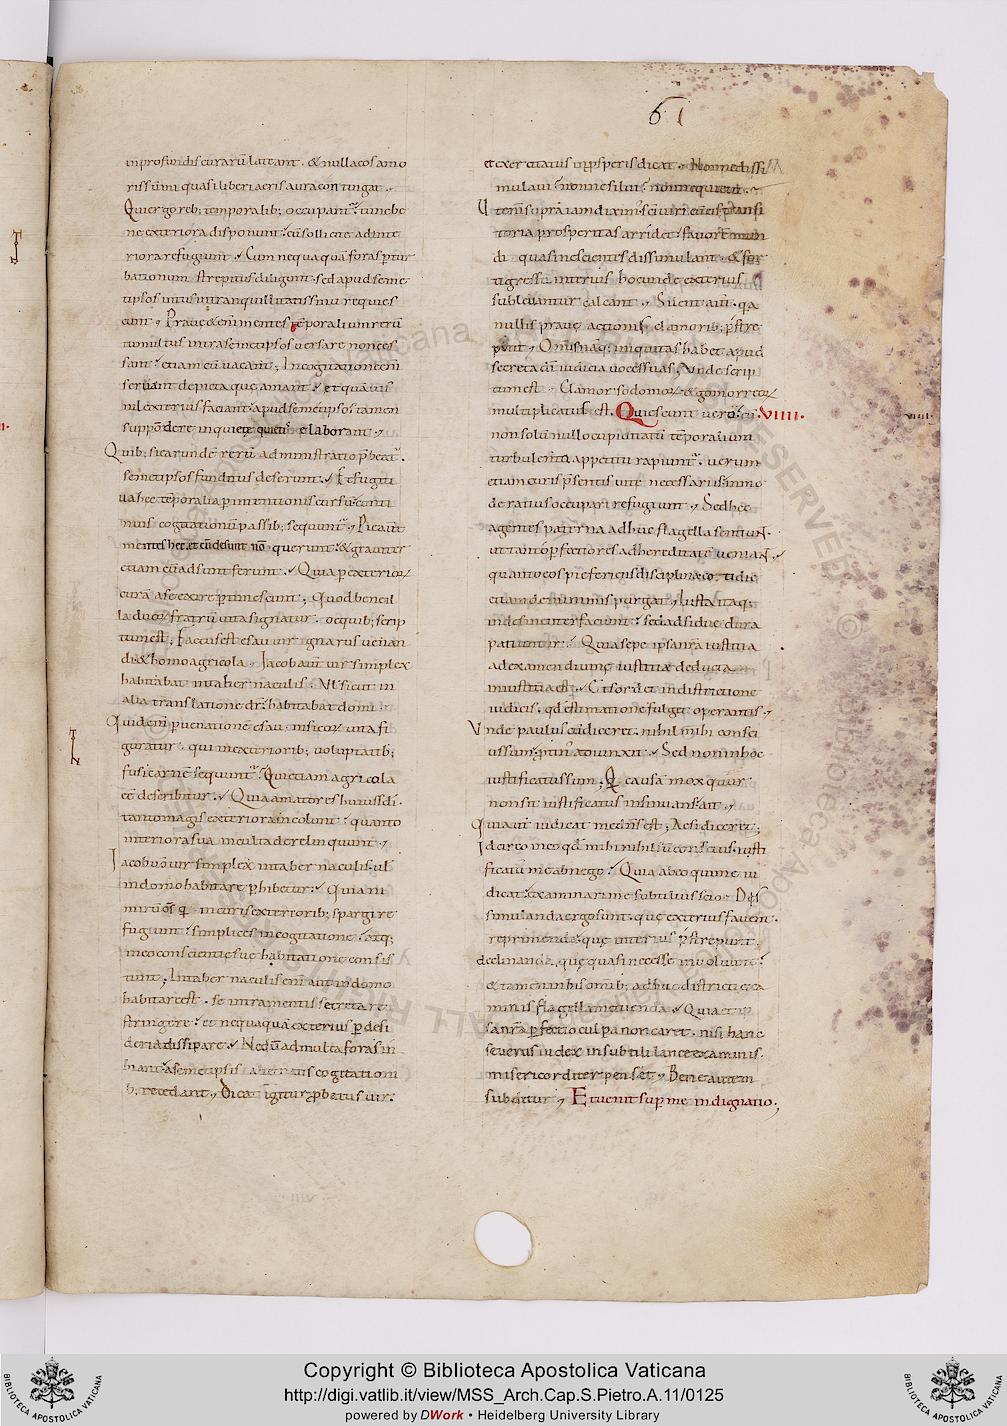 61
in profundis curarū latitant. & nulla eos amo
rissimi quasi liberi aeris aura contingat.
Qui ergo reb; temporalib; occupant̄. tunc be
ne exteriora disponunt. cū sollicite ad inte
riora refugiunt. Cum nequaquā foras p̄tur
bationum strepitus diligunt. sed apud seme
tipsos intus in tranquillitatis sinu requies
cunt. Prauę & enī mentes tēporalium rerū
tumultus intra semetipsos uersare non ces
sant. etiam cū uacant. In cogitatione enī
seruant depicta quę amant. et quāuis
nil exterius faciant. apud semetipsos tamen
sub pondere inquietę quietis elaborant.
Quib; si earundē rerū administratio p̄beat̄.
semetipsos funditus deserunt. Et fugiti
ua hęc tēporalia p intentionis cursū conti
nuis cogitationū passib; sequunt̄. Pię aut̄
mentes hęc et cū desunt nō querunt. & grauiter
etiam cū adsunt ferunt. Quia p exterior
curā a se exire p timescunt; Quod bene il
la duor fratrū uita signatur. de quib; scrip
tum est; Factus est esau uir gnarus uenan
di. & homo agricola. Jacob aut̄ uir simplex
habitabat in tabernaculis. Vl sicut in
alia translatione dr̄. habitabat domi
Quid enī p uenationē esau. nisi eor uita fi
guratur. qui in exteriorib; uoluptatib;
fusi carnē sequunt̄. Qui etiam agricola
eē describitur. Quia amatores huius sc̄li.
tanto magis exteriora incolunt. quanto
interiora sua inculta derelinquunt.
Jacob uō uir simplex in tabernaculis. ul
in domo habitare p̄hibetur. Quia ni
mirū om̄s q̇ in curis exteriorib; spargi re
fugiunt. simplices in cogitatione. atq;
in conscientię suę habitatione consis
tunt; In tabernaculis enī aut in domo
habitare est. se intra mentis secreta re
stringere. et nequaquā exterius p desi
deria dissipare. Ne dū ad multa foras in
hiant. a semetipsis alienatis cogitationi
b; recedant. Dicat igitur p̄batus uir.
et exercitatus in p̄speris dicat. Nonne dissi
mulaui. nonne silui. nonne quieui.
Ut enī supra iam diximꝰ. sc̄i uiri cū eis transi
toria prosperitas arridet. fauorē mun
di quasi nescientes dissimulant. & for
ti gressu interius hoc unde exterius
subleuantur calcant. Silent aut̄. qa
nullis prauę actionis clamorib; p̄stre
punt. Omnis nāq; iniquitas habet apud
secreta dī iudicia uoces suas; Vnde scrip
tum est. Clamor sodomor & gomorreor
multiplicatus est. Quiescunt uero. cū VIIII.
VIIII.
non solū nullo cupiditatū tēporalium
turbulento appetitu rapiunt̄. uerum
etiam curis p̄sentis uitę necessariis inmo
deratius occupari refugiunt. Sed hęc
agentes paterna adhuc flagella sentiunt.
ut tanto pfectiores ad hereditatē ueniant.
quanto eos pie feriens disciplina cotidie
etiam de minimis purgat. Iusta itaq;
indesinenter faciunt. sed adsidue dura
patiuntur. Quia sepe ipsa nr̄a iustitia
ad examen diuinę iustitię deducta
iniustitia est. Et sordet in districtione
iudicis. qd estimatione fulget operantis.
Vnde paulus cū diceret. nihil mihi consci
us sum. p̄tinꝰ adiunxit. Sed non in hoc
iustificatus sum; Qui causam mox qua
non sit iustificatus insinuans. ait.
Qui aut̄ iudicat me dn̄s est; Ac si diceret;
Idcirco in eo qd mihi nihil sū conscius. iusti
ficatū me abnego. Quia ab eo qui me iu
dicat. examinari me subtilius scio. Dis
simulanda ergo sunt. quę exterius fauent.
reprimenda. quę interius p̄strepunt.
declinanda. quę quasi necesse inuoluunt.
& tamen in his omib; adhuc districti exa
minis flagella metuenda. Quia et ip
sa nr̄a pfectio culpa non caret. nisi hanc
seuerus iudex in subtili lance examinis.
misericorditer penset. Bene autem
subditur. Et uenit super me indignatio.
Copyright © Biblioteca Apostolica Vaticana
http://digi.vatlib.it/view/MSS_Arch.Cap.S.Pietro.A.11/0125
powered by DWork • Heidelberg University Library
BIBLIOTECA APOSTOLICA VATICANA
BIBLIOTECA APOSTOLICA VATICANA